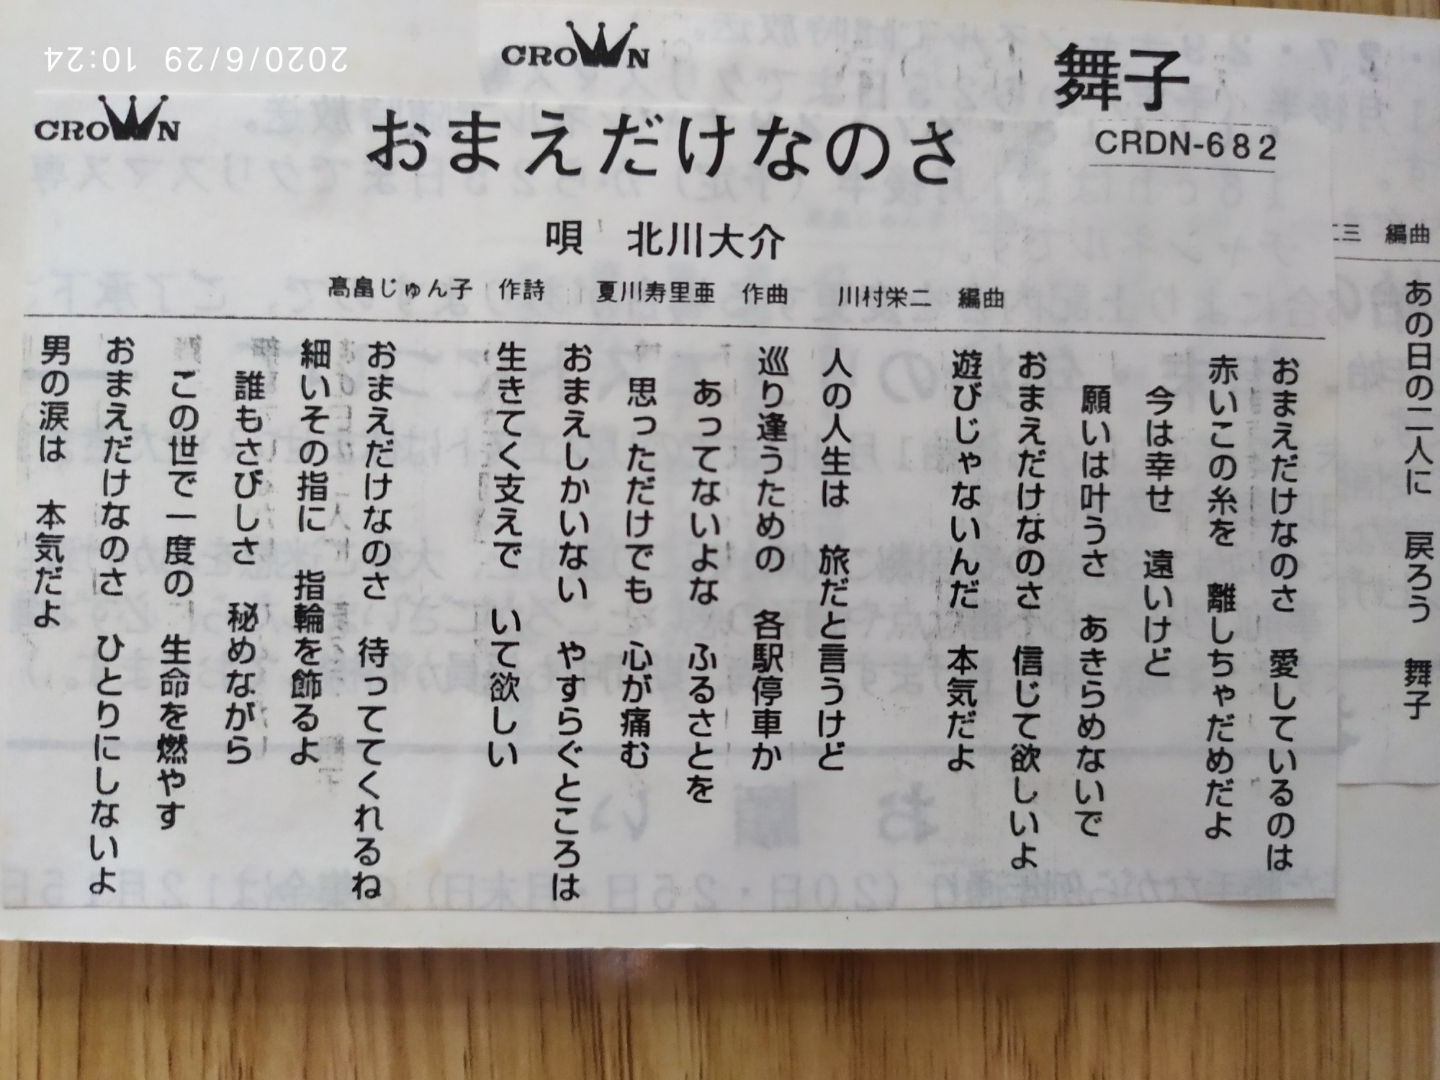 2020/6/29 10:24
CROWN
舞子
CROWN
おまえだけなのさ
CRDN-682
唄 北川大介
高畠じゅん子 作詩 夏川寿里亜 作曲 川村栄二 編曲
三 編曲
あの日の二人に 戻ろう 舞子
おまえだけなのさ 愛しているのは
赤いこの糸を 離しちゃだめだよ
今は幸せ 遠いけど
願いは叶うさ あきらめないで
おまえだけなのさ 信じて欲しいよ
遊びじゃないんだ 本気だよ
人の人生は 旅だと言うけど
巡り逢うための 各駅停車か
あってないよな ふるさとを
思っただけでも 心が痛む
おまえしかいない やすらぐところは
生きてく支えで いて欲しい
おまえだけなのさ 待っててくれるね
細いその指に 指輪を飾るよ
誰もさびしさ 秘めながら
この世で一度の 生命を燃やす
おまえだけなのさ ひとりにしないよ
男の涙は 本気だよ